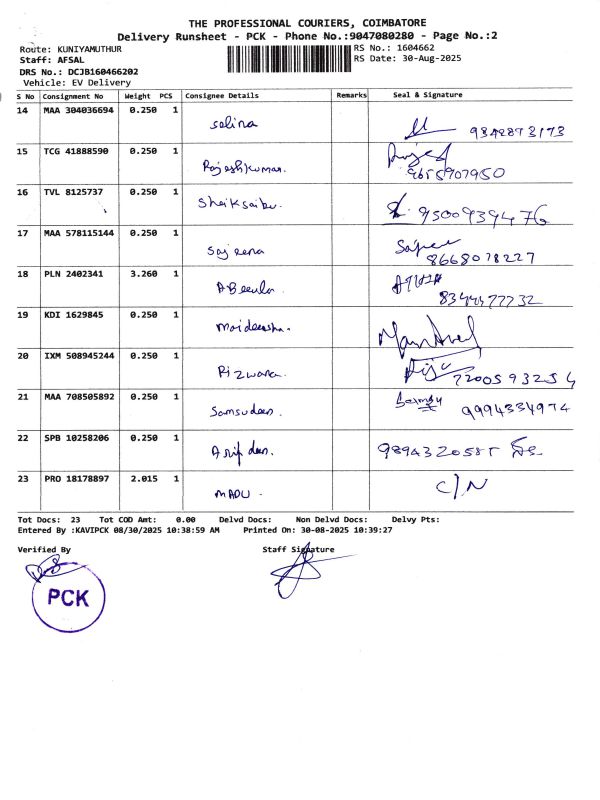 THE PROFESSIONAL COURIERS, COIMBATORE
Delivery Runsheet - PCK - Phone No.:9047080280 - Page No.:2
Route: KUNIYAMUTHUR
RS No.: 1604662
Staff: AFSAL
RS Date: 30-Aug-2025
DRS No.: DCJB160466202
Vehicle: EV Delivery
S No Consignment No Weight PCS Consignee Details Remarks Seal & Signature
14 MAA 304036694 0.250 1
Selina 9842873173
15 TCG 41888590 0.250 1
Rajeshkumar. 9655907950
16 TVL 8125737 0.250 1
Sheiksaibu. 9500939476
17 MAA 578115144 0.250 1
Sajeena 8668078227
18 PLN 2402341 3.260 1
A Beeula. 8344577732
19 KDI 1629845 0.250 1
Maideensha.
20 IXM 508945244 0.250 1
Rizwana. 7200593254
21 MAA 708505892 0.250 1
Samsudeen. 9994334974
22 SPB 10258206 0.250 1
Asif deen. 9894320585
23 PRO 18178897 2.015 1
MADU. C/N
Tot Docs: 23 Tot COD Amt: 0.00 Delvd Docs: Non Delvd Docs: Delvy Pts:
Entered By :KAVIPCK 08/30/2025 10:38:59 AM Printed On: 30-08-2025 10:39:27
Verified By Staff Signature
PCK